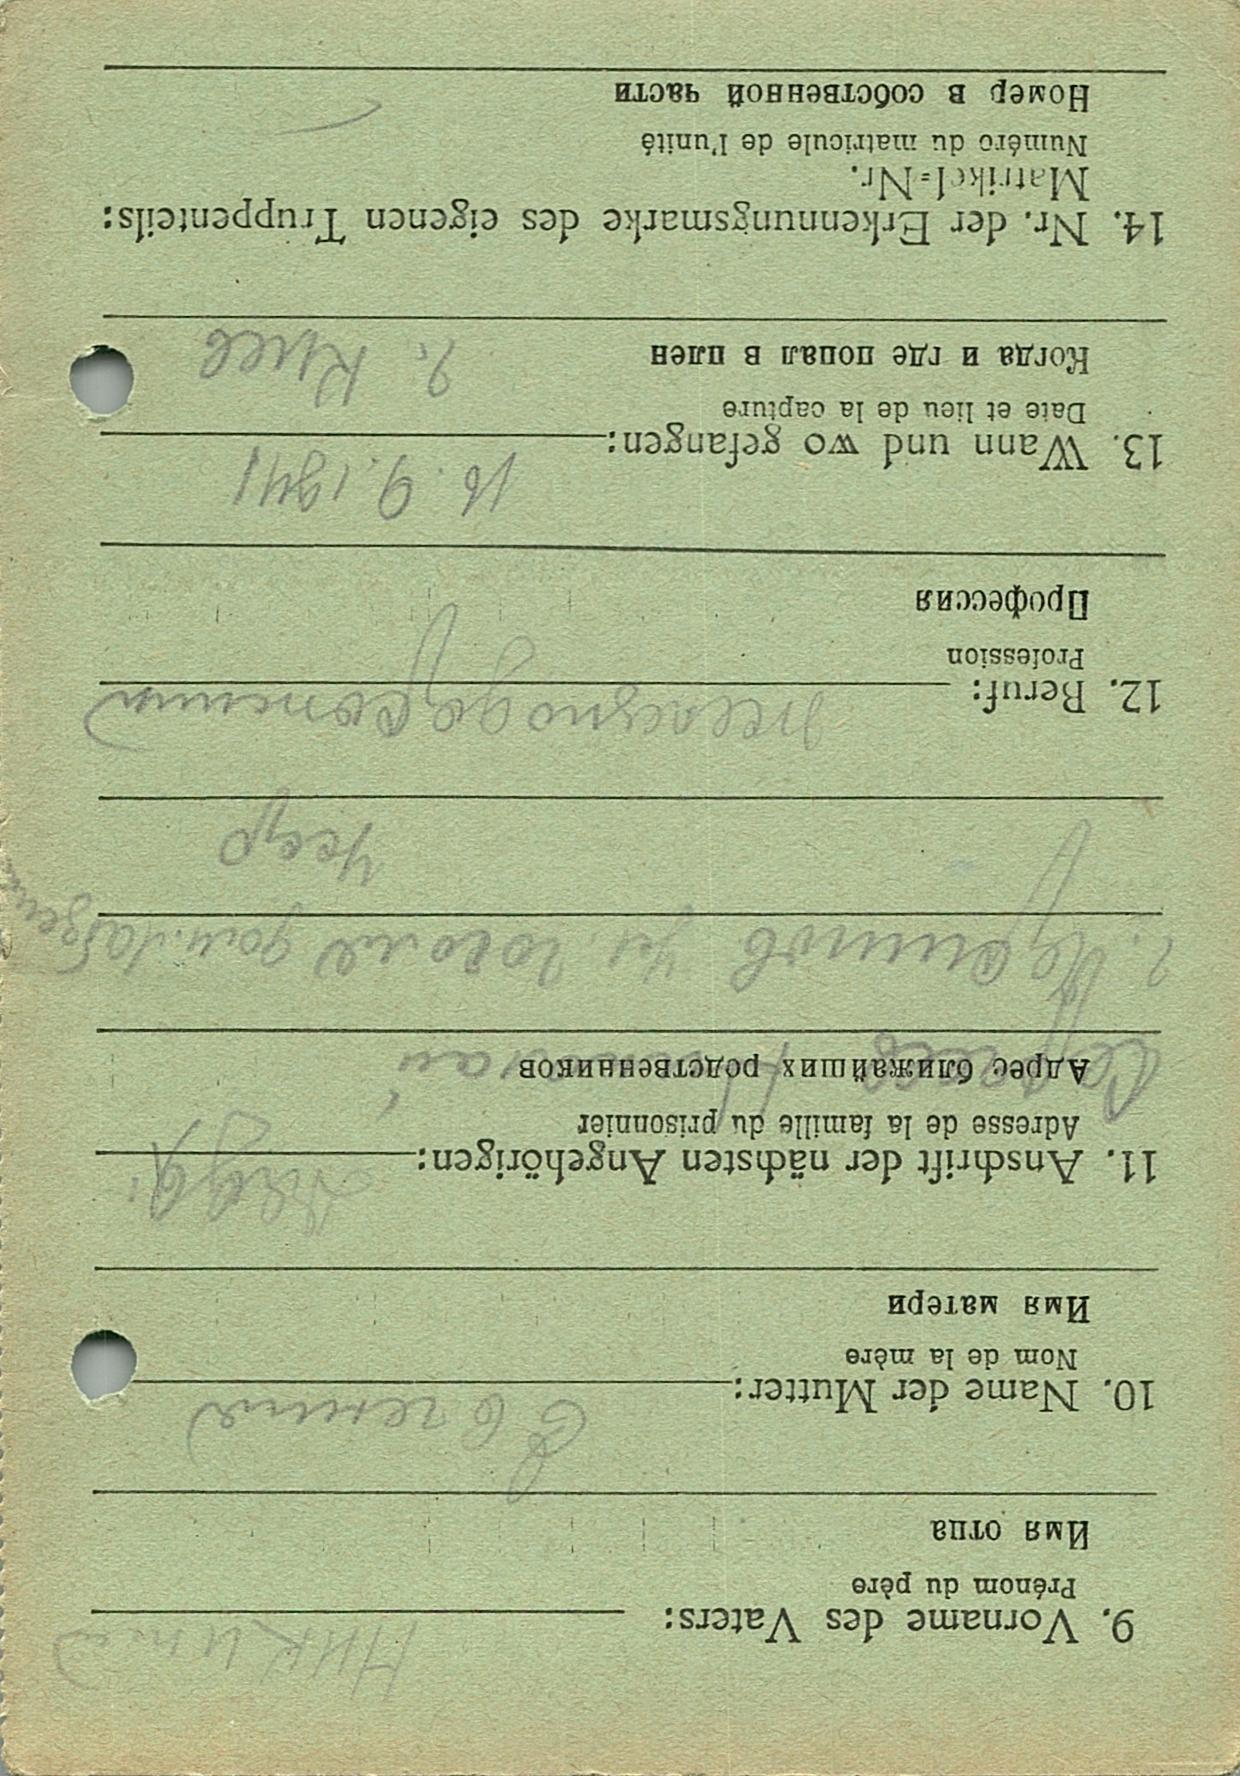 9. Vorname des Vaters:
Prénom du père
Имя отца
10. Name der Mutter:
Евгения
Nom de la mère
Имя матери
11. Anschrift der nächsten Angehörigen:
Adresse de la famille du prisonnier
Адрес ближайших родственников
Николай
г. ул. Гоголя
УССР
12. Beruf:
Profession
Профессия
13. Wann und wo gefangen:
16.9.1941
Date et lieu de la capture
Когда и где попал в плен
г. Киев
14. Nr. der Erkennungsmarke des eigenen Truppenteils:
Matrikel=Nr.
Numéro du matricule de l'unité
Номер в собственной части